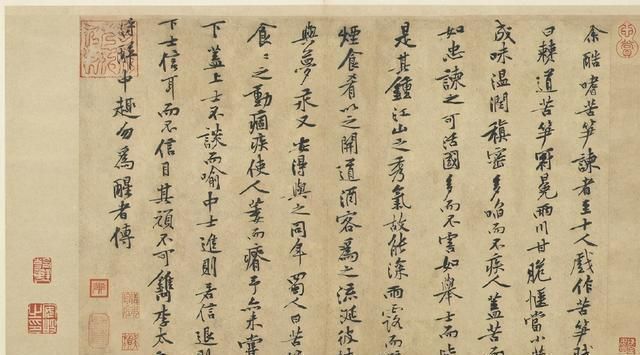 余酷嗜苦筍諫者至十人戲作苦筍賦
曰僰道苦筍冠冕兩川甘脆愜當小苦
成味溫潤縝密多啗而不疾人蓋苦而
如忠諫之可活國多而不害如舉士而皆
是其鍾江山之秀氣故能深雨露而避
煙食肴以之開道酒客為之流涎彼桂
與夢永又安得與之同年蜀人曰苦筍
食〻之動痼疾使人萎而瘠予亦未嘗
下蓋上士不談而喻中士進則若信退則
下士信耳而不信目其頑不可鐫李太
得醉中趣勿為醒者傳